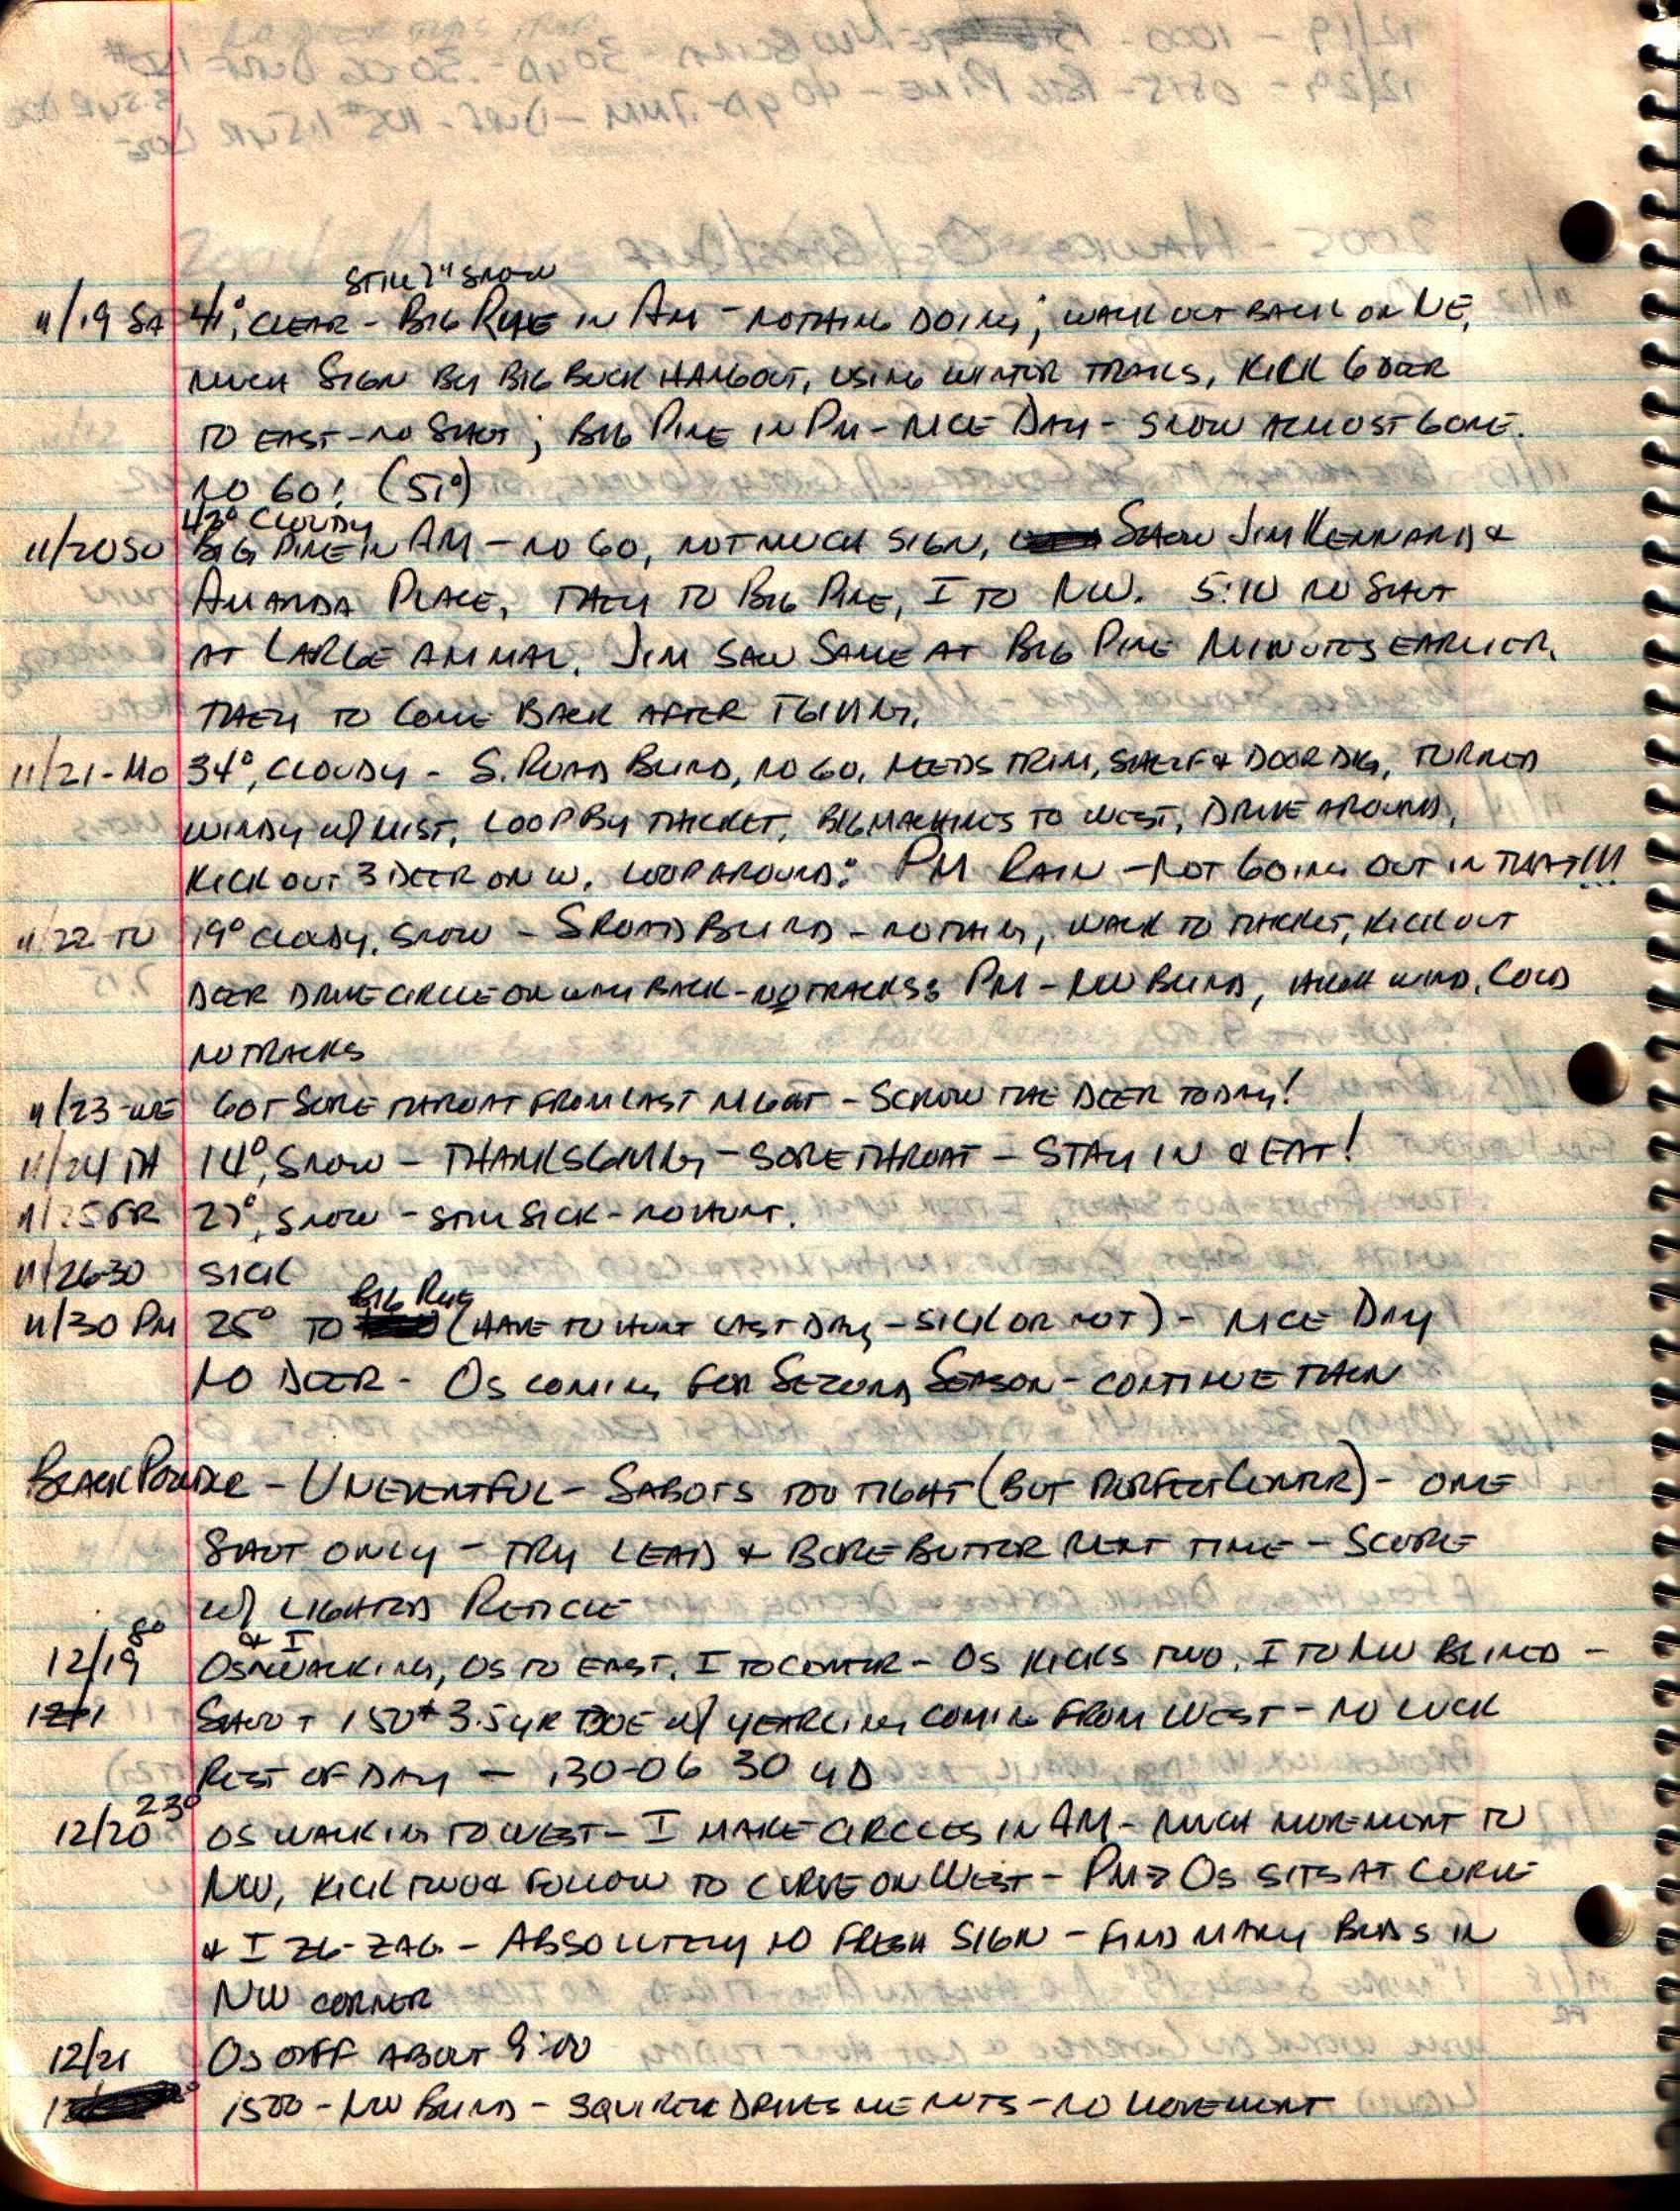 STILL 2" SNOW
11/19 SA 41°, CLEAR - BIG PINE IN AM - NOTHING DOING; WALK OUT BACK ON NE,
MUCH SIGN BY BIG BUCK HANGOUT, USING WINTER TRAILS, KICK 6 DEER
TO EAST - NO SHOT; BIG PINE IN PM - NICE DAY - SNOW ALMOST GONE.
NO GO! (51°)
42° CLOUDY
11/20 SU BIG PINE IN AM - NO GO, NOT MUCH SIGN, SHOW JIM KENNARD &
AMANDA PLACE, THEY TO BIG PINE, I TO NW. 5:10 NO SHOT
AT LARGE ANIMAL. JIM SAW SAME AT BIG PINE MINUTES EARLIER.
THEY TO COME BACK AFTER TGIVING.
11/21-MO 34°, CLOUDY - S. ROAD BLIND, NO GO. NEEDS TRIM, SHELF & DOOR DIG, TURNED
WINDY W/ MIST. LOOP BY THICKET, BIG MACHINES TO WEST, DRIVE AROUND,
KICK OUT 3 DEER ON W. LOOP AROUND: PM RAIN - NOT GOING OUT IN THAT!!!
11/22 TU 19° CLOUDY, SNOW - S ROAD BLIND - NOTHING, WALK TO THICKET, KICK OUT
DEER DRIVE CIRCLE ON WAY BACK - NO TRACKS; PM - NW BLIND, HIGH WIND, COLD
NO TRACKS
11/23-WE GOT SORE THROAT FROM LAST NIGHT - SCROW THE DEER TODAY!
11/24 TH 14°, SNOW - THANKSGIVING - SORE THROAT - STAY IN & EAT!
11/25 FR 27°, SNOW - STILL SICK - NO HUNT.
11/26-30 SICK
BIG PINE
11/30 PM 25° TO (HAVE TO HUNT LAST DAY - SICK OR NOT) - NICE DAY
NO DEER - OS COMING FOR SECOND SEASON - CONTINUE THEN
BLACK POWDER - UNEVENTFUL - SABOTS TOO TIGHT (BUT PERFECT CENTER) - ONE
SHOT ONLY - TRY LEAD & BORE BUTTER NEXT TIME - SCOPE
W/ LIGHTED RETICLE
8° & I
12/19 OS WALKING, OS TO EAST, I TO CENTER - OS KICKS TWO, I TO NW BLIND -
SHOOT 150# 3.5 YR DOE W/ YEARLING COMING FROM WEST - NO LUCK
REST OF DAY - .30-06 30 YD
23°
12/20 OS WALKING TO WEST - I MAKE CIRCLES IN AM - MUCH MOVEMENT TO
NW, KICK TWO & FOLLOW TO CURVE ON WEST - PM OS SITS AT CURVE
& I ZIG-ZAG - ABSOLUTELY NO FRESH SIGN - FIND MANY BEDS IN
NW CORNER
12/21 OS OFF ABOUT 9:00
1500 - NW BLIND - SQUIRREL DRIVES ME NUTS - NO MOVEMENT